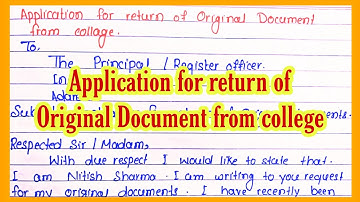 Application for return of Original Document
from collage.
To,
The Principal / Register officer.
In
Adam
Application for return of
Original Document from college
Su
Respected Sir / Madam,
With due respect I would like to state that.
I am Nitish Sharma. I am writing to you request
for my original documents. I have recently been